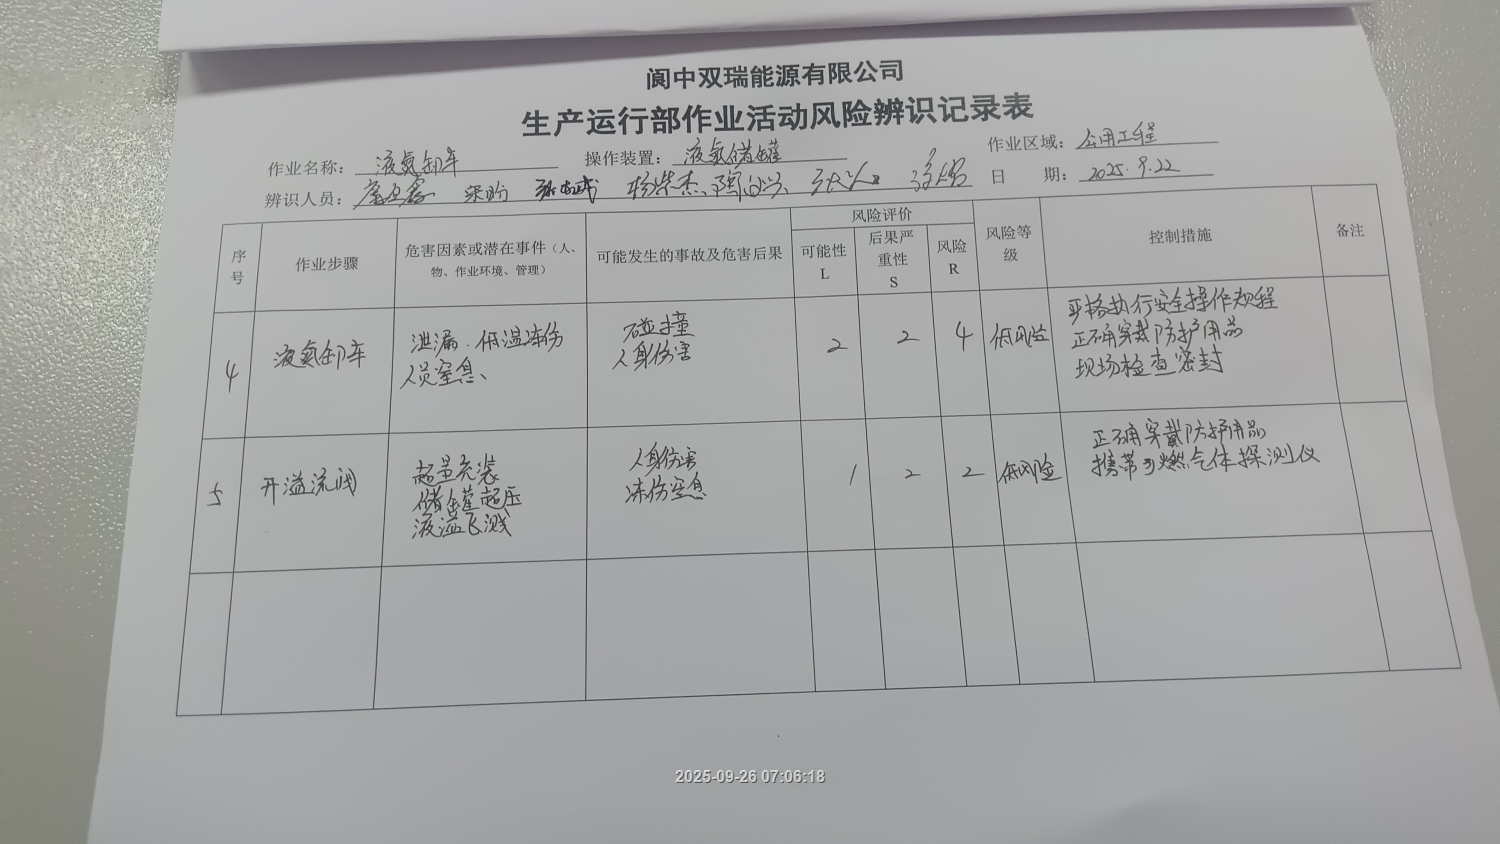 阆中双瑞能源有限公司
生产运行部作业活动风险辨识记录表
作业名称： 液氮卸车 操作装置： 液氮储罐 作业区域： 公用工程
辨识人员： 日 期： 2025.9.22
序号 作业步骤 危害因素或潜在事件（人、物、作业环境、管理） 可能发生的事故及危害后果 风险评价 风险等级 控制措施 备注
可能性 L 后果严重性 S 风险 R
4 液氮卸车 泄漏.低温冻伤 碰撞 2 2 4 低风险 严格执行安全操作规程
人员窒息、 人身伤害 正确穿戴防护用品
现场检查密封
5 开溢流阀 超量充装 人身伤害 1 2 2 低风险 正确穿戴防护用品
储罐超压 冻伤窒息 携带可燃气体探测仪
液溢飞溅
2025-09-26 07:06:18